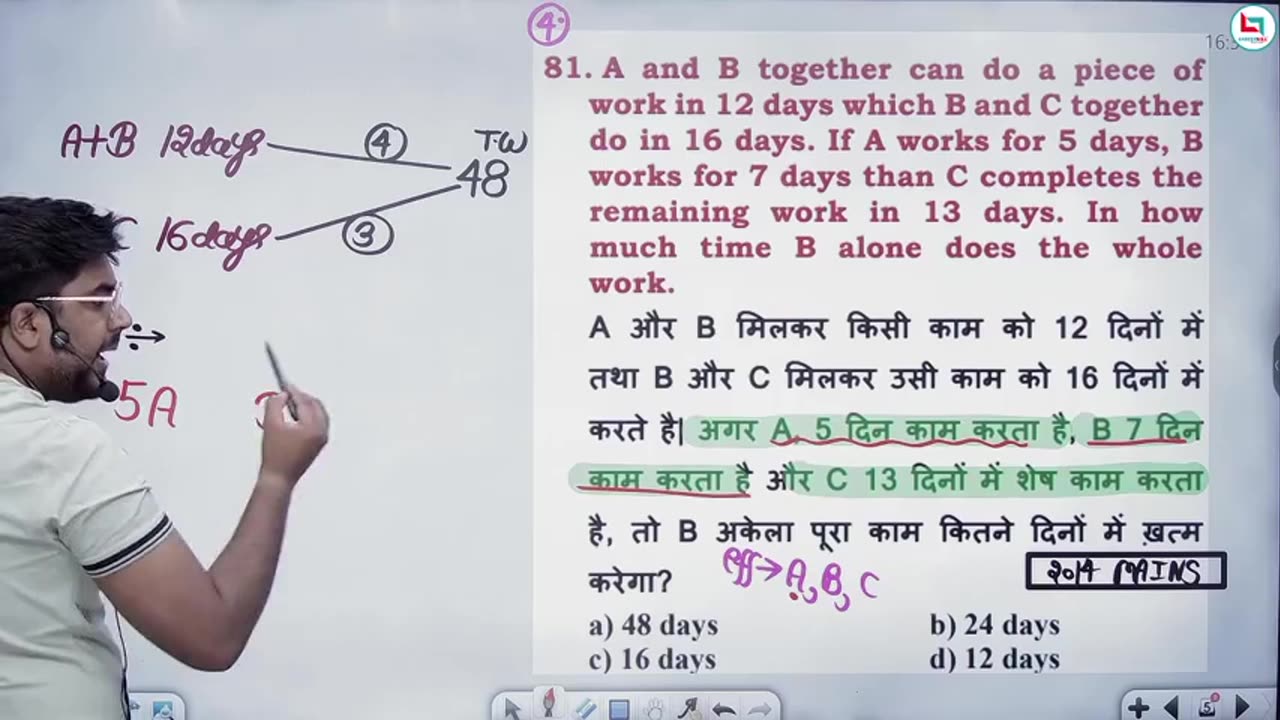 ④
16:
81. A and B together can do a piece of
work in 12 days which B and C together
do in 16 days. If A works for 5 days, B
works for 7 days than C completes the
remaining work in 13 days. In how
much time B alone does the whole
work.
A और B मिलकर किसी काम को 12 दिनों में
तथा B और C मिलकर उसी काम को 16 दिनों में
करते है| अगर A, 5 दिन काम करता है, B 7 दिन
काम करता है और C 13 दिनों में शेष काम करता
है, तो B अकेला पूरा काम कितने दिनों में ख़त्म
करेगा?
eff→A, B, C
2014 MAINS
a) 48 days
b) 24 days
c) 16 days
d) 12 days
A+B 12days
④
TW
48
16days
③
÷→
5A
5